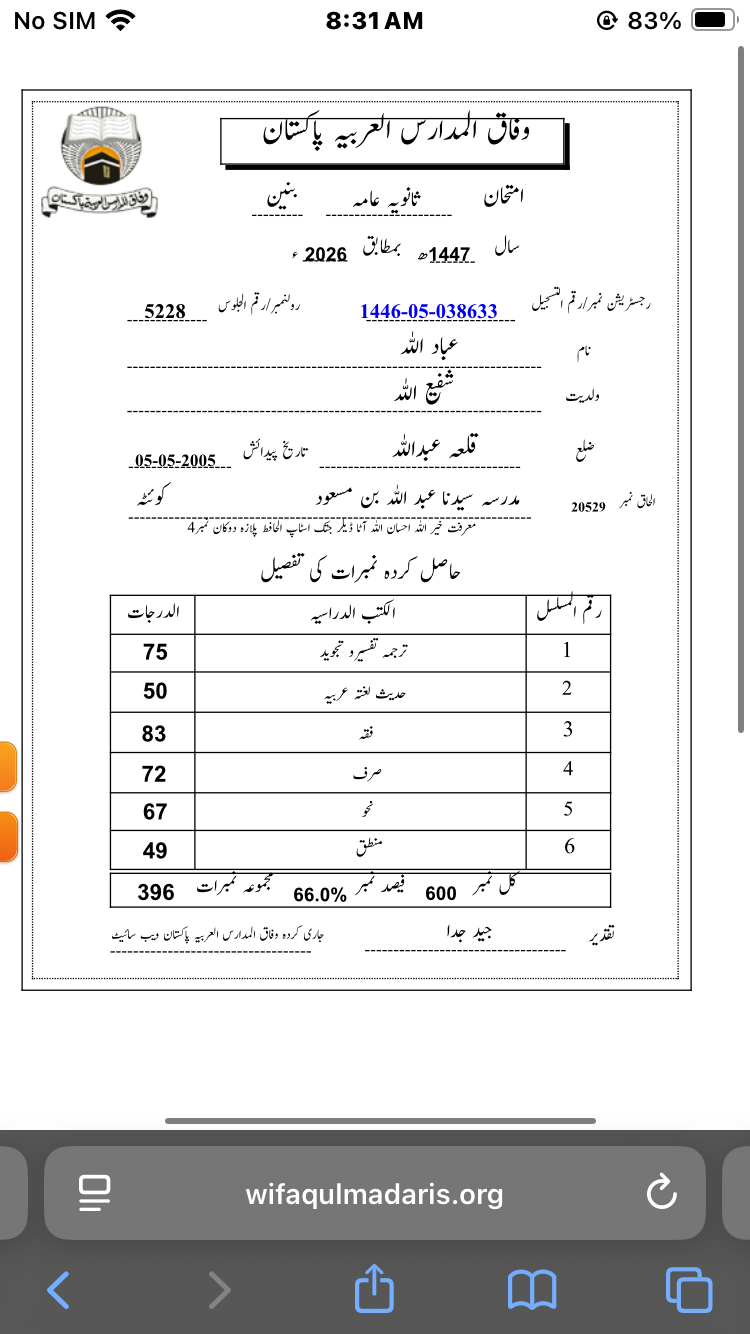 No SIM 8:31 AM 83%
وفاق المدارس العربیہ پاکستان
وفاق المدارس العربیہ پاکستان
امتحان ثانویہ عامہ بنین
سال 1447ھ بمطابق 2026ء
رجسٹریشن نمبر/رقم التسجیل 1446-05-038633 رولنمبر/رقم الجلوس 5228
نام عباد اللہ
ولدیت شفیع اللہ
ضلع قلعہ عبداللہ تاریخ پیدائش 05-05-2005
الحاق نمبر 20529 مدرسہ سیدنا عبد اللہ بن مسعود کوئٹہ
معرفت خیر اللہ احسان اللہ آٹا ڈیلر جتک اسٹاپ الحافظ پلازہ دوکان نمبر4
حاصل کردہ نمبرات کی تفصیل
رقم المسلسل الکتب الدراسیہ الدرجات
1 ترجمہ تفسیر و تجوید 75
2 حدیث لغتہ عربیہ 50
3 فقہ 83
4 صرف 72
5 نحو 67
6 منطق 49
کل نمبر 600 فیصد نمبر 66.0% مجموعہ نمبرات 396
تقدیر جید جدا جاری کردہ وفاق المدارس العربیہ پاکستان ویب سائیٹ
wifaqulmadaris.org